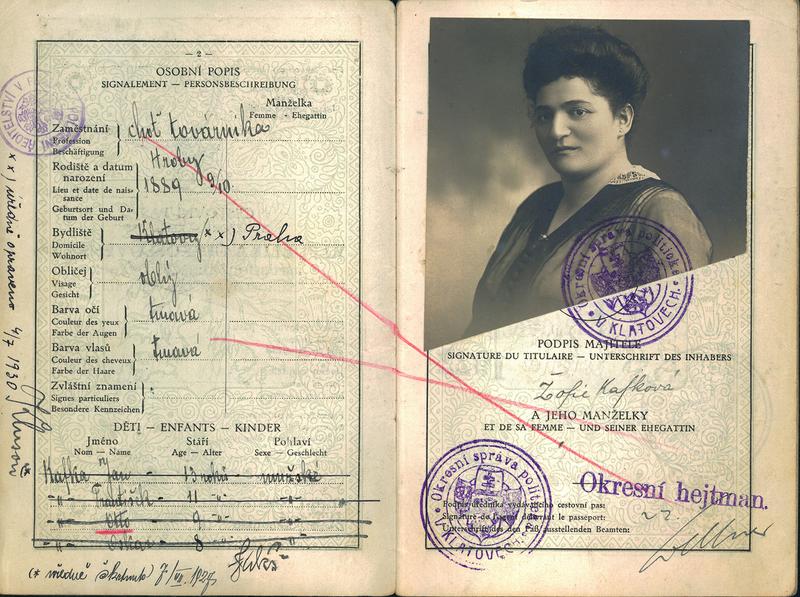 — 2 —
OSOBNÍ POPIS
SIGNALEMENT — PERSONSBESCHREIBUNG
Manželka
Femme - Ehegattin
Zaměstnání
Profession
Beschäftigung
choť továrníka
Rodiště a datum
narození
Lieu et date de nais-
sance
Geburtsort und Da-
tum der Geburt
Hroby
1889 9/10.
Bydliště
Domicile
Wohnort
Klatovy x x ) Praha
Obličej
Visage
Gesicht
oblý
Barva očí
Couleur des yeux
Farbe der Augen
tmavá
Barva vlasů
Couleur des cheveux
Farbe der Haare
tmavá
Zvláštní znamení
Signes particuliers
Besondere Kennzeichen
DĚTI — ENFANTS — KINDER
Jméno Stáří Pohlaví
Nom — Name Age — Alter Sexe — Geschlecht
Kafka Jan - 13 roků - mužské
-"- František - 11 -"- -"-
-"- Otto - 9 -"- -"-
-"- - 8 -"- -"-
(* úředně škrtnuto 7/VII. 1927
x x ) úředně opraveno 4/7 1930
ŘEDITELSTVÍ V P
Okresní správa politická
V KLATOVECH.
PODPIS MAJITELE
SIGNATURE DU TITULAIRE — UNTERSCHRIFT DES INHABERS
Žofie Kafková
A JEHO MANŽELKY
ET DE SA FEMME — UND SEINER EHEGATTIN
Okresní správa politická
V KLATOVECH.
Okresní hejtman.
Podpis úředníka vydávajícího cestovní pas:
Signature de l'agent délivrant le passeport:
Unterschrift des den Paß ausstellenden Beamten: